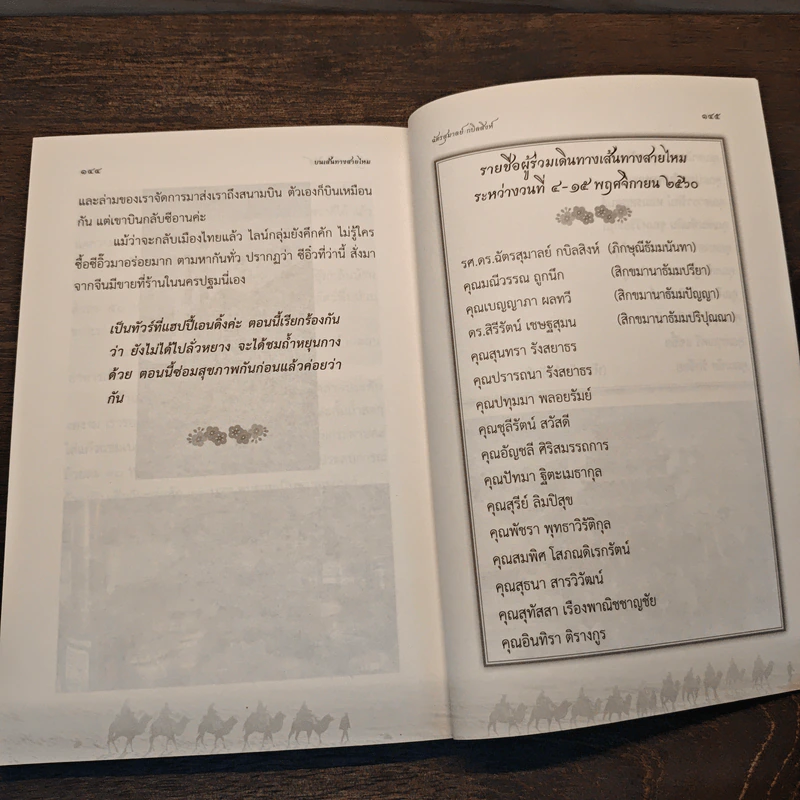 ๑๔๔
บนเส้นทางสายไหม
และล่ามของเราจัดการมาส่งเราถึงสนามบิน ตัวเองก็บินเหมือน
กัน แต่เขาบินกลับซีอานค่ะ
แม้ว่าจะกลับเมืองไทยแล้ว ไลน์กลุ่มยังคึกคัก ไม่รู้ใคร
ซื้อซีอิ๊วมาอร่อยมาก ตามหากันทั่ว ปรากฏว่า ซีอิ๋วที่ว่านี้ สั่งมา
จากจีนมีขายที่ร้านในนครปฐมนี่เอง
เป็นทัวร์ที่แฮปปี้เอนดิ้งค่ะ ตอนนี้เรียกร้องกัน
ว่า ยังไม่ได้ไปลั่วหยาง จะได้ชมถ้ำหยุนกาง
ด้วย ตอนนี้ซ่อมสุขภาพกันก่อนแล้วค่อยว่า
กัน
ฉัตรสุมาลย์ กบิลสิงห์
๑๔๕
รายชื่อผู้ร่วมเดินทางเส้นทางสายไหม
ระหว่างวันที่ ๔-๑๕ พฤศจิกายน ๒๕๖๐
รศ.ดร.ฉัตรสุมาลย์ กบิลสิงห์ (ภิกษุณีธัมมนันทา)
คุณมณีวรรณ ถูกนึก (สิกขมานาธัมมปรียา)
คุณเบญญาภา ผลทวี (สิกขมานาธัมมปัญญา)
ดร.สิรีรัตน์ เชษฐสุมน (สิกขมานาธัมมปริปุณณา)
คุณสุนทรา รังสยาธร
คุณปรารถนา รังสยาธร
คุณปทุมมา พลอยรัมย์
คุณชุลีรัตน์ สวัสดี
คุณอัญชลี ศิริสมรรถการ
คุณปัทมา ฐิตะเมธากุล
คุณสุรีย์ ลิมปิสุข
คุณพัชรา พุทธาวิรัติกุล
คุณสมพิศ โสภณดิเรกรัตน์
คุณสุธนา สารวิวัฒน์
คุณสุทัสสา เรืองพาณิชชาญชัย
คุณอินทิรา ติรางกูร